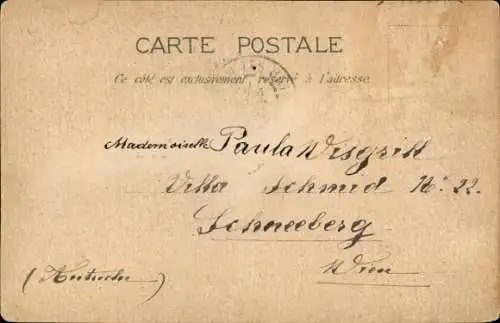 CARTE POSTALE
Ce côté est exclusivement réservé à l'adresse
Mademoiselle Paula Wisgrill
Villa Schmid No. 22.
Schneeberg
Wien